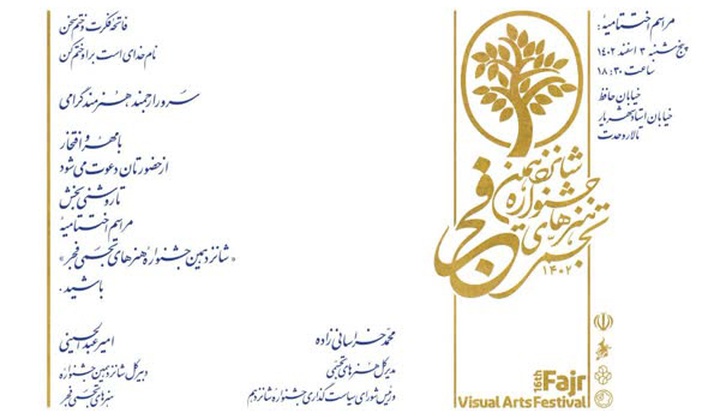 مراسم اختتامیه:
پنج‌شنبه ۳ اسفند ۱۴۰۲
ساعت ۱۸:۳۰
خیابان حافظ
خیابان استاد شهریار
تالار وحدت
شانزدهمین
جشنواره
هنرهای
تجسمی فجر
۱۴۰۲
16th Fajr
Visual Arts Festival
فاتحهٔ فکرت و ختم سخن
نام خدای است بر او ختم کن
سرور ارجمند، هنرمند گرامی
با مهر و افتخار
از حضورتان دعوت می‌شود
تا روشنی‌بخش
مراسم اختتامیهٔ
«شانزدهمین جشنوارهٔ هنرهای تجسمی فجر»
باشید.
محمد خراسانی‌زاده
مدیر کل هنرهای تجسمی
و رئیس شورای سیاست‌گذاری جشنواره شانزدهم
امیر عبدالحسینی
دبیر کل شانزدهمین جشنواره
هنرهای تجسمی فجر